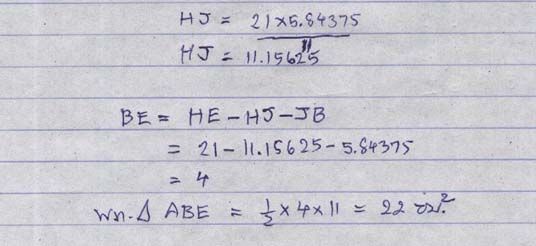 HJ = 21×5.84375
11
HJ = 11.15625
BE = HE - HJ - JB
= 21 - 11.15625 - 5.84375
= 4
พท. Δ ABE = 1/2 × 4 × 11 = 22 ซม.²